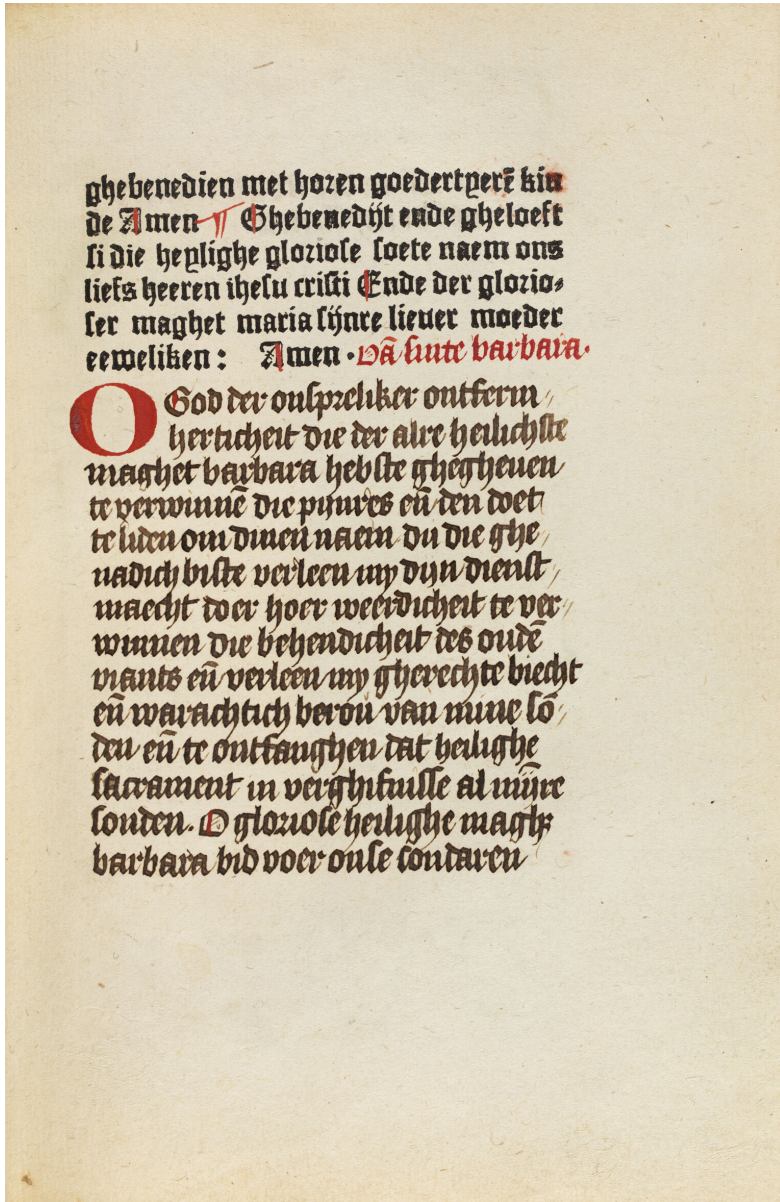 ghebenedien met horen goedertyerē kin
de Amen ¶ Ghebenedijt ende gheloeft
si die heylighe gloriose soete naem ons
liefs heeren ihesu cristi Ende der glorio⸗
ser maghet maria sijnre lieuer moeder
eeweliken : Amen · Vā sinte barbara·
O God der onspreliker ontferm/
herticheit die der alre heilichste
maghet barbara hebste ghegheuen
te verwinnē die pijnres eñ den doet
te liden om dinen naem du die ghe/
nadich biste verleen my dijn dienst/
maecht doer hoer weerdicheit te ver/
winnen die behendicheit des oudē
viants eñ verleen my gherechte biecht
eñ warachtich berou van mine sō/
den eñ te ontfanghen dat heilighe
sacrament in verghifnisse al mijnre
sonden. O gloriose heilighe magh
barbara bid voer onse sondaren